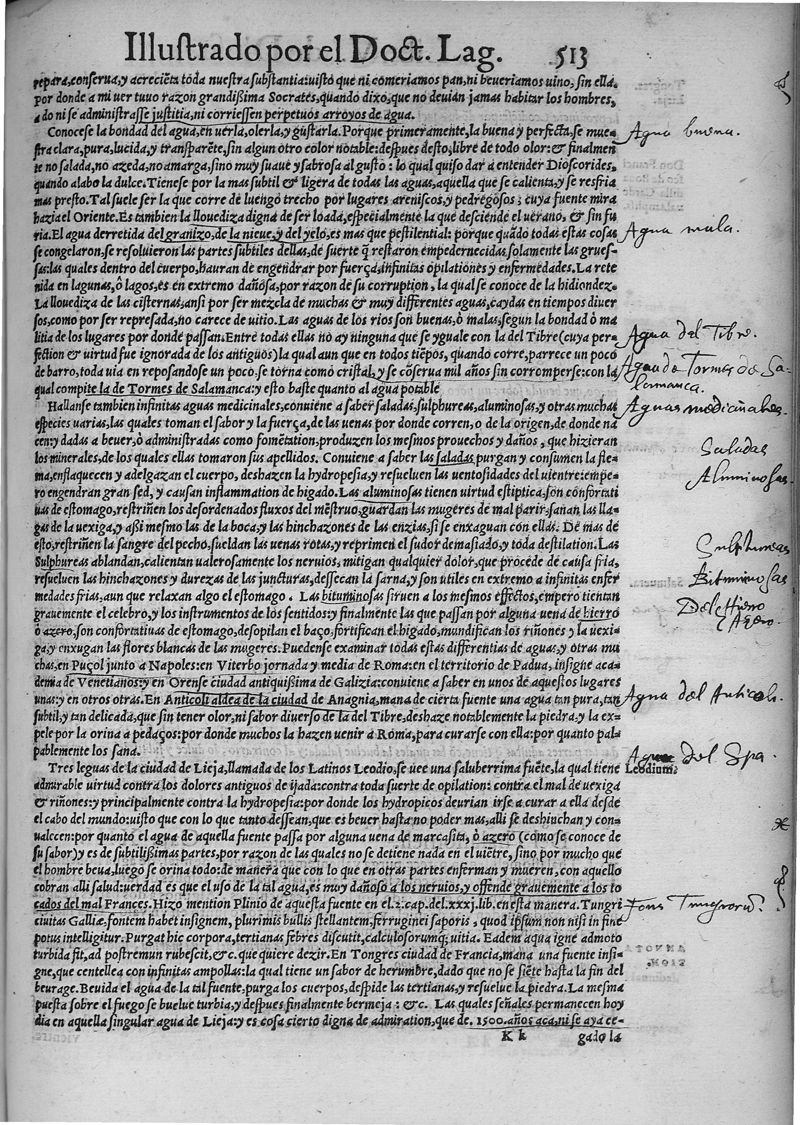 Illustrado por el Doct. Lag. 513
repara, conserua, y acreciẽta toda nuestra substantia: uisto que ni comeriamos pan, ni beueriamos uino, sin ella.
por donde a mi uer tuuo razon grandißima Socrates, quando dixo, que no deuian jamas habitar los hombres,
a do ni se administrasse justitia, ni corriessen perpetuos arroyos de agua.
Conocese la bondad del agua, en uerla, olerla, y gustarla. Porque primeramente, la buena y perfecta, se mue-
stra clara, pura, lucida, y transparẽte, sin algun otro color notable: despues desto, libre de todo olor: & finalmen
te no salada, no azeda, no amarga, sino muy suaue y sabrosa al gusto: lo qual quiso dar a entender Dioscorides,
quando alabo la dulce. Tienese por la mas subtil & ligera de todas las aguas, aquella que se calienta, y se resfria
mas presto. Tal suele ser la que corre de luengo trecho por lugares areniscos, y pedregosos; cuya fuente mira
hazia el Oriente. Es tambien la llouediza digna de ser loada, especialmente la que desciende el uerano, & sin fu
ria. El agua derretida del granizo, de la nieue, y del yelo, es mas que pestilential: porque quãdo todas estas cosas
se congelaron, se resoluieron las partes subtiles dellas, de suerte q̃ restaron empedernecidas solamente las grues-
sas: las quales dentro del cuerpo, hauran de engendrar por fuerça, infinitas opilationes y enfermedades. La rete
nida en lagunas, ò lagos, es en extremo dañosa, por razon de su corruption, la qual se conoce de la hidiondez.
La llouediza de las cisternas, ansi por ser mezcla de muchas & muy differentes aguas, caydas en tiempos diuer
sos, como por ser represada, no carece de uitio. Las aguas de los rios son buenas, ò malas, segun la bondad ò ma
litia de los lugares por donde passan. Entre todas ellas no ay ninguna que se yguale con la del Tibre (cuya per-
fection & uirtud fue ignorada de los antiguos) la qual aun que en todos tiẽpos, quando corre, parrece un poco
de barro, toda uia en reposandose un poco, se torna como cristal, y se cõserua mil años sin corromperse: con la
qual compite la de Tormes de Salamanca: y esto baste quanto al agua potable
Hallanse tambien infinitas aguas medicinales, conuiene a saber saladas, sulphureas, aluminosas, y otras muchas
especies uarias, las quales toman el sabor y la fuerça, de las uenas por donde corren, o de la origen, de donde na
cen: y dadas a beuer, ò administradas como fomẽtation, produzen los mesmos prouechos y daños, que hizieran
los minerales, de los quales ellas tomaron sus apellidos. Conuiene a saber las saladas purgan y consumen la fle-
ma, enflaquecen y adelgazan el cuerpo, deshazen la hydropesia, y resueluen las uentosidades del uientre: empe-
ro engendran gran sed, y causan inflammation de higado. Las aluminosas tienen uirtud estiptica, son cõfortati
uas de estomago, restriñen los desordenados fluxos del mẽstruo, guardan las mugeres de mal parir, sanan las lla-
gas de la uexiga, y aßi mesmo las de la boca, y las hinchazones de las enzias, si se enxaguan con ellas. De mas de
esto, restriñen la sangre del pecho, sueldan las uenas rotas, y reprimen el sudor demasiado, y toda destilation. Las
Sulphureas ablandan, calientan ualerosamente los neruios, mitigan qualquier dolor, que procede de causa fria,
resueluen las hinchazones y durezas de las juncturas, dessecan la sarna, y son utiles en extremo a infinitas enfer
medades frias, aun que relaxan algo el estomago. Las bituminosas siruen a los mesmos effectos, empero tientan
grauemente el celebro, y los instrumentos de los sentidos: y finalmente las que passan por alguna uena de hierro
ò azero, son confortatiuas de estomago, desopilan el baço, fortifican el higado, mundifican los riñones y la uexi-
ga, y enxugan las flores blancas de las mugeres. Puedense examinar todas estas differentias de aguas, y otras mu
chas, en Puçol junto a Napoles: en Viterbo jornada y media de Roma: en el territorio de Padua, insigne aca-
demia de Venetianos: y en Orense ciudad antiquißima de Galizia: conuiene a saber en unos de aquestos lugares
unas: y en otros otras. En Anticoli aldea de la ciudad de Anagnia, mana de cierta fuente una agua tan pura, tan
subtil, y tan delicada, que sin tener olor, ni sabor diuerso de la del Tibre, deshaze notablemente la piedra, y la ex-
pele por la orina a pedaços: por donde muchos la hazen uenir a Roma, para curarse con ella: por quanto pal-
pablemente los sana.
Tres leguas de la ciudad de Lieja, llamada de los Latinos Leodio, se uee una saluberrima fuẽte, la qual tiene
admirable uirtud contra los dolores antiguos de ijada: contra toda suerte de opilation: contra el mal de uexiga
& riñones: y principalmente contra la hydropesia: por donde los hydropicos deurian irse a curar a ella desde
el cabo del mundo: uisto que con lo que tanto dessean, que es beuer hasta no poder mas, alli se deshinchan y con-
ualecen: por quanto el agua de aquella fuente passa por alguna uena de marcasita, ò azero (como se conoce de
su sabor) y es de subtilißimas partes, por razon de las quales no se detiene nada en el uiẽtre, sino por mucho que
el hombre beua, luego se orina todo: de manera que con lo que en otras partes enferman y mueren, con aquello
cobran alli salud: uerdad es que el uso de la tal agua, es muy dañoso a los neruios, y offende grauemente a los to
cados del mal Frances. Hizo mention Plinio de aquesta fuente en el .2. cap. del .xxxj. lib. en esta manera. Tungri
ciuitas Galliæ, fontem habet insignem, plurimis bullis stellantem, ferruginei saporis, quod ipsum non nisi in fine
potus intelligitur. Purgat hic corpora, tertianas febres discutit, calculorumq; uitia. Eadem aqua igne admoto
turbida fit, ad postremun rubescit, &c. que quiere dezir. En Tongres ciudad de Francia, mana una fuente insi-
gne, que centellea con infinitas ampollas: la qual tiene un sabor de herumbre, dado que no se siẽte hasta la fin del
beurage. Beuida el agua de la tal fuente, purga los cuerpos, despide las tertianas, y resuelue la piedra. La mesma
puesta sobre el fuego se buelue turbia, y despues finalmente bermeja: &c. Las quales señales permanecen hoy
dia en aquella singular agua de Lieja: y es cosa cierto digna de admiration, que de .1500. años aca, ni se aya ce-
K k gado la
Agua buena.
Agua mala.
Agua del Tibre.
Agua de Tormes de Sa-
lamanca.
Aguas mediçinales.
Saladas
Aluminosas.
Sulphureas
Bituminosas
Del Hierro
y Azero.
Agua del Anticoli.
Agua del Spa.
Leodium.
Fons Tungrorũ.